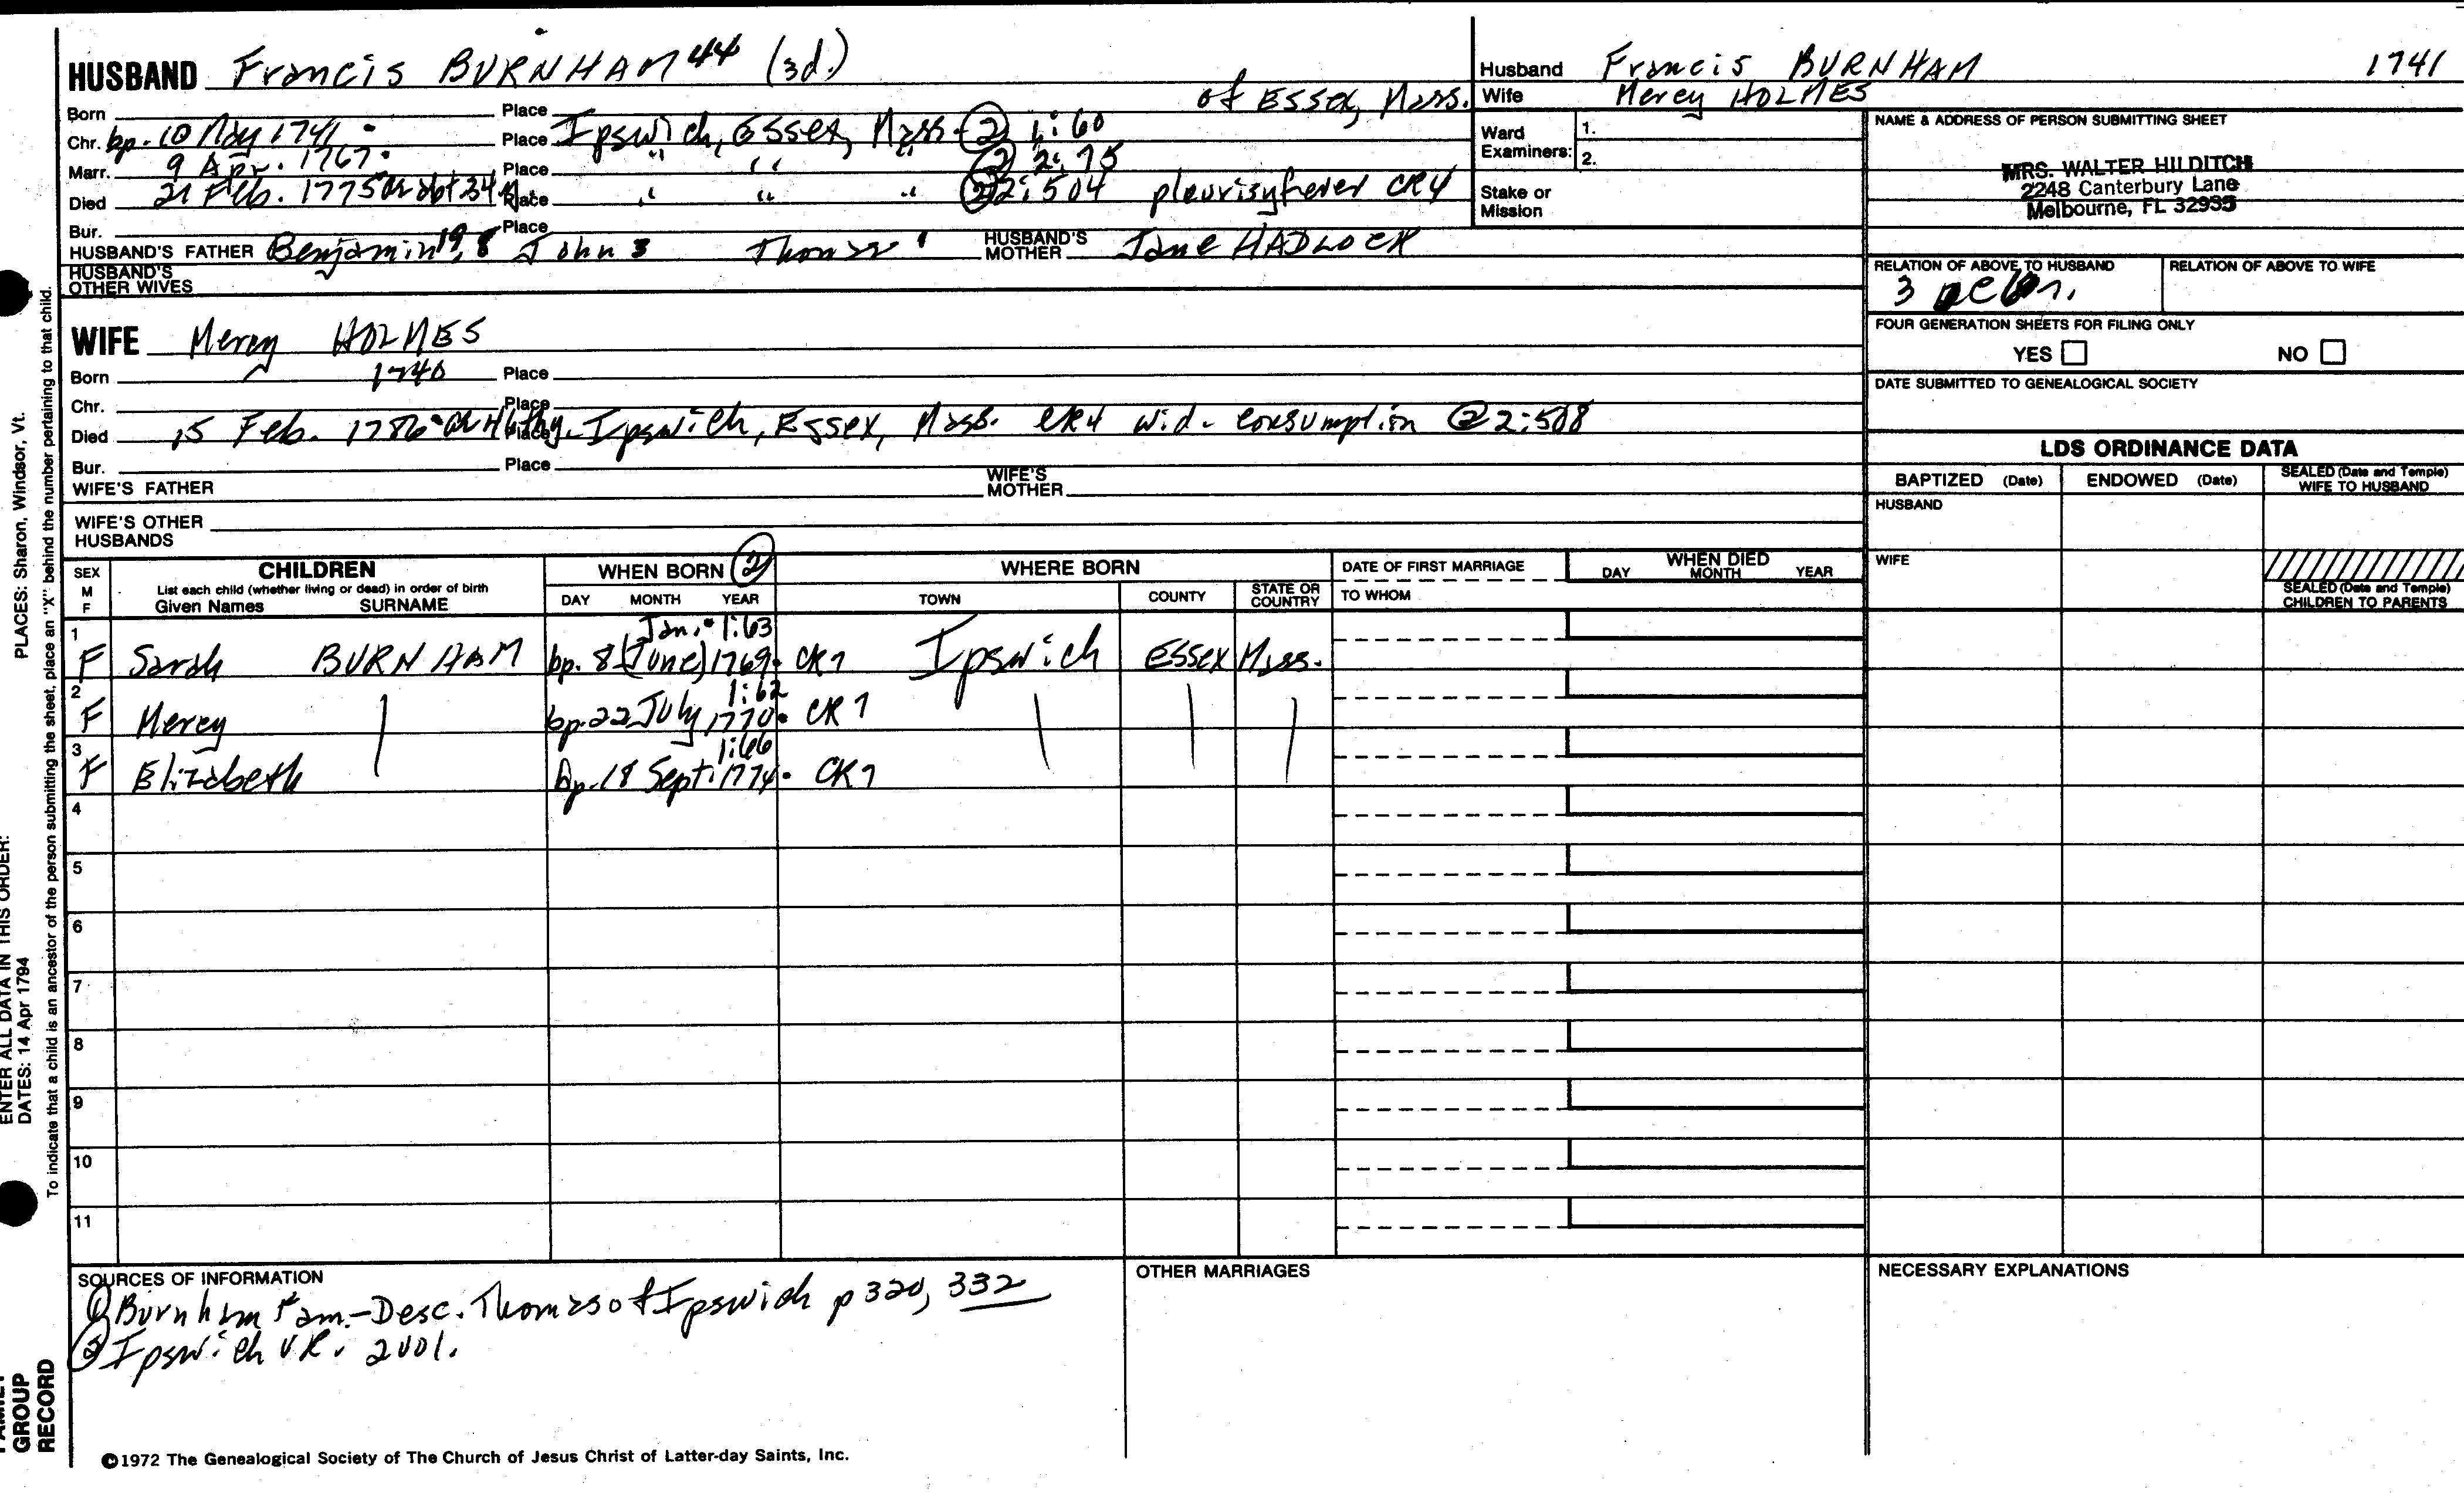 HUSBAND Francis BURNHAM 44 (3d.)
of Essex, Mass.
Born Place
Chr. bp. 10 May 1741. Place Ipswich, Essex, Mass. (2) 1:60
Marr. 9 Apr. 1767. Place " " " (2) 2:75
Died 21 Feb. 1775 ae abt 34 y. Place " " " (2) 2:504 pleurisy fever CR4
Bur. Place
HUSBAND'S FATHER Benjamin 19, 8 John 3 Thomas 1 HUSBAND'S MOTHER Jane HADLOCK
HUSBAND'S OTHER WIVES
WIFE Mercy HOLMES
Born 1740 Place
Chr. Place
Died 15 Feb. 1786. Place Ipswich, Essex, Mass. CR4 wid. consumption (2) 2:508
Bur. Place
WIFE'S FATHER WIFE'S MOTHER
WIFE'S OTHER HUSBANDS
Husband Francis BURNHAM 1741
Wife Mercy HOLMES
Ward Examiners: 1.
2.
Stake or Mission
NAME & ADDRESS OF PERSON SUBMITTING SHEET
MRS. WALTER HILDITCH
2248 Canterbury Lane
Melbourne, FL 32935
RELATION OF ABOVE TO HUSBAND RELATION OF ABOVE TO WIFE
3
FOUR GENERATION SHEETS FOR FILING ONLY
YES NO
DATE SUBMITTED TO GENEALOGICAL SOCIETY
LDS ORDINANCE DATA
BAPTIZED (Date) ENDOWED (Date) SEALED (Date and Temple) WIFE TO HUSBAND
HUSBAND
WIFE
SEALED (Date and Temple) CHILDREN TO PARENTS
SEX M F CHILDREN WHEN BORN (2) WHERE BORN DATE OF FIRST MARRIAGE WHEN DIED
List each child (whether living or dead) in order of birth
Given Names SURNAME DAY MONTH YEAR TOWN COUNTY STATE OR COUNTRY TO WHOM DAY MONTH YEAR
Jan. 1:63
1 F Sarah BURNHAM bp. 8 (June) 1769. CR7 Ipswich Essex Mass.
1:62
2 F Mercy bp. 22 July 1770. CR7
1:66
3 F Elizabeth bp. 18 Sept. 1774. CR7
4
5
6
7
8
9
10
11
SOURCES OF INFORMATION
(1) Burnham Fam.-Desc. Thomas of Ipswich p 320, 332
(2) Ipswich V.R. 2 vol.
OTHER MARRIAGES
NECESSARY EXPLANATIONS
©1972 The Genealogical Society of The Church of Jesus Christ of Latter-day Saints, Inc.
PLACES: Sharon, Windsor, Vt.
ENTER ALL DATA IN THIS ORDER:
DATES: 14 Apr 1794
To indicate that a child is an ancestor of the person submitting the sheet, place an "X" behind the number pertaining to that child.
FAMILY GROUP RECORD